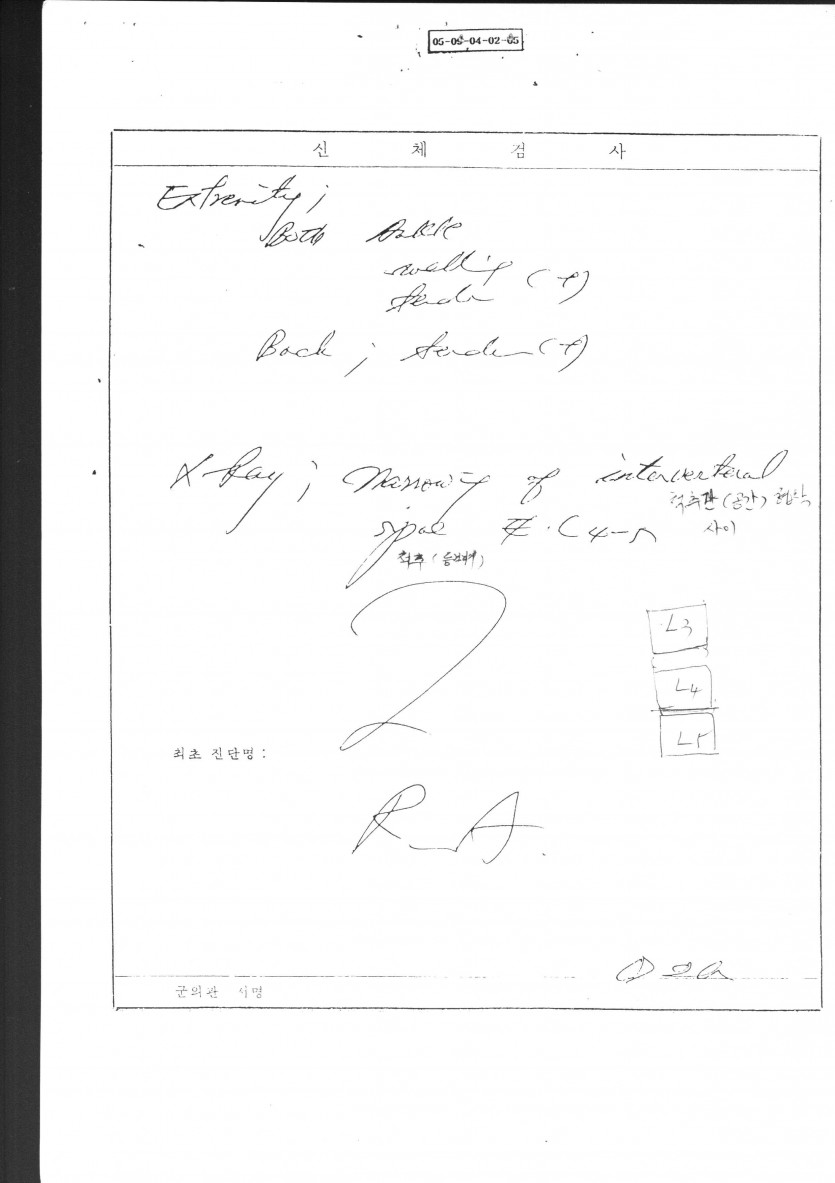 05-05-04-02-05
신 체 검 사
Extremity ;
Both Ankle
swelling
tender (+)
Back ; tender (+)
X-Ray ; Narrowing of intervertebral
척추관 (공간) 협착
사이
척추 (
L3
L4
L5
최초 진단명 :
R A.
군의관 서명